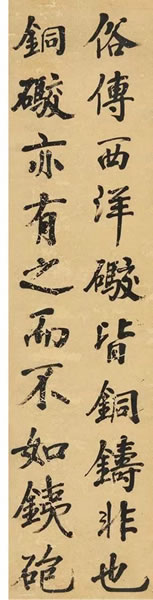 俗傳西洋礮皆銅鑄非也
銅礮亦有之而不如銕砲